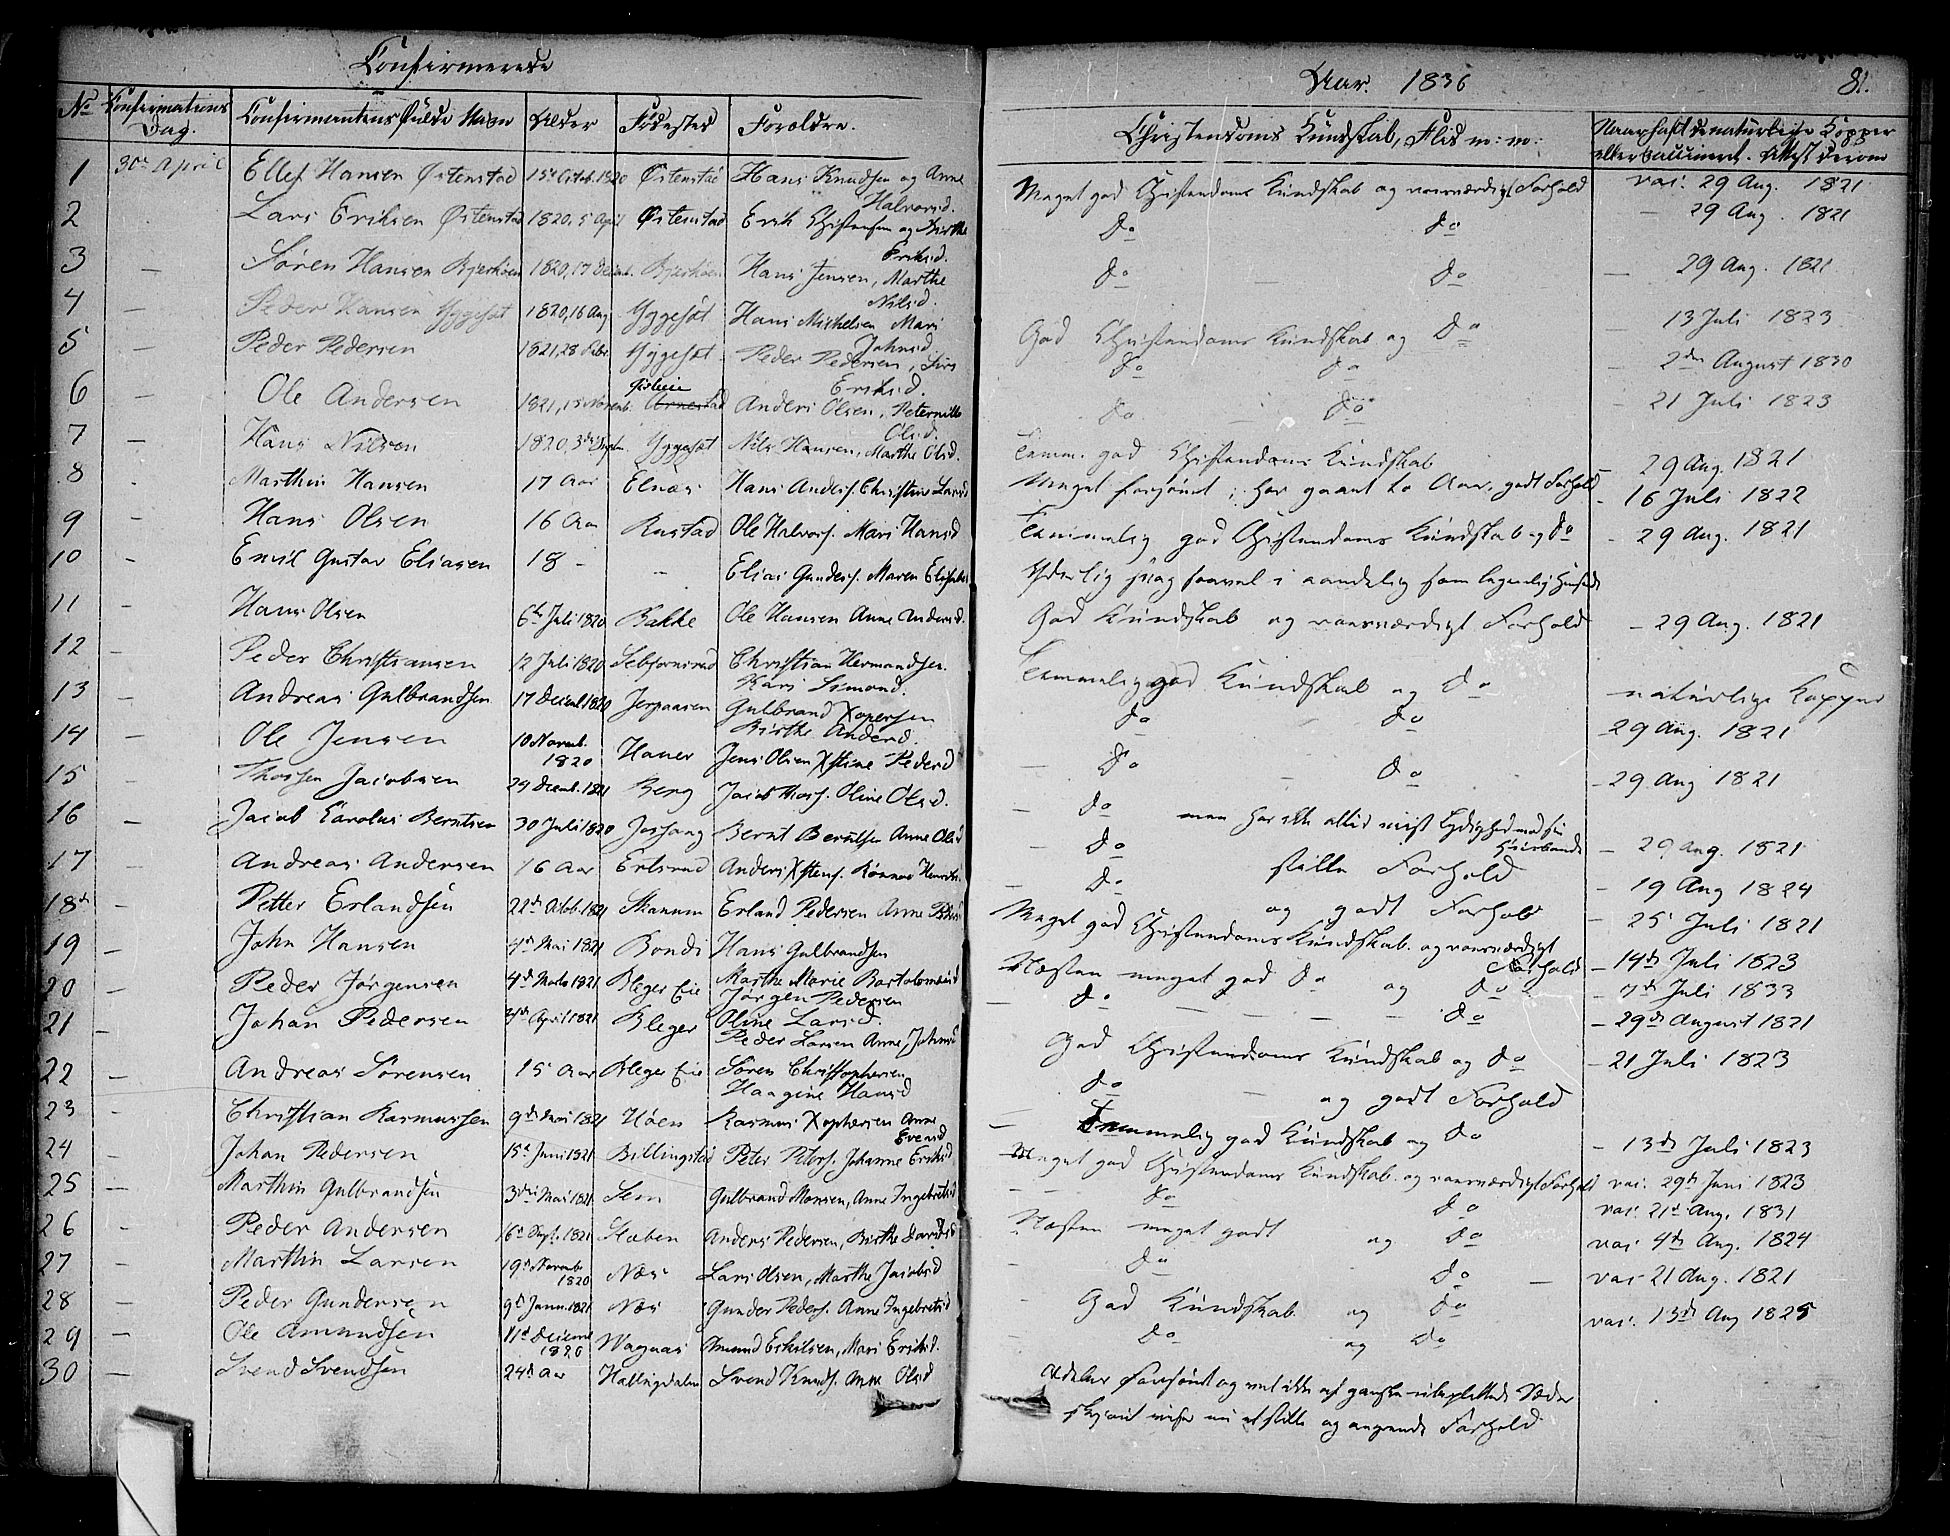 Confirmerede
Aar 1836
81.
No Confirmations Dag. Confirmantens Fulde Navn Alder Fødested Forældre.
Christendoms Kundskab, Flid m: m: Naar havt de naturlige Kopper eller vaccineret. Attest derom
1 30te April Ellef Hansen Østenstad 15de Octob. 1820 Østenstad Hans Knudsen og Anne Halvorsd. Meget god Christendoms Kundskab og roesværdigt Forhold vac. 29 Aug. 1821
2 Lars Eriksen Østenstad 1820, 5 April Østenstad Erik Christensen og Birthe Eriksd. do do — 29 Aug. 1821
3 — Søren Hansen Bjerkøen 1820, 17 Decemb. Bjerkøen Hans Jensen, Marthe Nilsd. do — do — 29 Aug. 1821
4 — Peder Hansen Yggesæt 1820, 16 Aug Yggesæt Hans Michelsen Mari Johnsd. God Christendoms Kundskab og do — 13 Juli 1823
5 — Peder Pedersen 1821, 28 Febr Yggesæt Peder Pedersen, Siri Eriksd. do do — 2den August 1830
6 — Ole Andersen 1821, 15 Novemb. Arnestad Anders Olsen, Peternille Olsd. do — do — 21 Juli 1823
7 — Hans Nilsen 1820, 3die Septn. Yggesæt Nils Hansen, Marthe Olsd. Temm. god Christendoms Kundskab — 29 Aug. 1821
8 - Marthin Hansen 17 Aar Elnæs Hans Anders. Christine Larsd Meget forsømt; har gaaet to Aar, godt Forhold - 16 Juli 1822
9 - Hans Olsen 16 Aar Rustad Ole Halvors. Mari Hansd Temmelig god Christendoms Kundskab og do - 29 Aug. 1821
10 - Emil Gustav Eliasen 18 - - Elias Gunders. Maren Yderlig svag saavel i aandelig som legemlig Henseende
11 - Hans Olsen 6te Juli 1820 Bakke Ole Hansen Anne Andersd. God Kundskab og roesværdigt Forhold - 29 Aug. 1821
12 - Peder Christiansen 12 Juli 1820 Christian Hermandsen. Kari Simond. Temmelig god Kundskab og do naturlige Kopper
13 — Andreas Gulbrandsen 17 Decemb 1820 Jerpaasen Gulbrand Xophersen Birthe Andersd. do do 29 Aug. 1821
14 — Ole Jensen 10 Novemb. 1820 Haner Jens Olsen Xstine Pedersd — do — do 29 Aug 1821
15 — Thosten Jacobsen 24 Decemb. 1821 Berg Jacob Thors. Oline Olsd. — do men har ikke altid viist Lydighed mod sin Huusbonde — 29 Aug. 1821
16 — Jacob Carolus Berntsen 30 Juli 1820 Josfang Bernt Berntsen Anne Olsd — do stille Forhold — 19 Aug 1824
17 — Andreas Andersen 16 Aar Erlsrud Anders Xstens. — do og godt Forhold — 25 Juli 1821
18de — Petter Erlandsen 22de Octob. 1821 Skaanum Erland Pedersen Anne Meget god Christendoms Kundskab. og roesværdigt Forhold — 14de Juli 1823
19 — John Hansen 4de Mai 1821 Bondi Hans Gulbrandsen Marthe Marie Bartolomæid Næsten meget god do og do — 7de Juli 1833
20 — Peder Jørgensen 4de Marts 1821 Bleger Eie Jørgen Pedersen Oline Larsd. — do — — do — 29de August 1821
21 — Johan Pedersen 4de April 1821 Bleger Peder Larsen Anne, Johnsd God Christendoms Kundskab og do — 21 Juli 1823
22 — Andreas Sørensen 15 Aar Bleger Eie Søren Christophersen Haagine Hansd do — og godt Forhold
23 — Christian Rasmussen 9de Mai 1821 Høen Rasmus Xophersen Anne Evensd — Temmelig god Kundskab og do — 13de Juli 1823
24 — Johan Pedersen 15de Juni 1821 Billingstad Peter Peters. Johanne Eriksd. Meget god Christendoms Kundskab. og roesværdigt Forhold vac. 29de Juni 1823
25 — Marthin Gulbrandsen 3die Mai 1821 Sem Gulbrand Monsen, Anne Ingebretsd — do do vac. 21de Aug. 1831
26 — Peder Andersen 16de Sept. 1821 Staben Anders Pedersen, Birthe Davidsd Næsten meget godt og do vac. 4de Aug. 1824
27 — Marthin Larsen 19de Novembr 1820 Næs Lars Olsen, Marthe Jacobsd - do do — vac. 21 Aug. 1821
28 — Peder Gundersen 9de Janu. 1821 Næs Gunder Peders. Anne Ingebretsd God Kundskab og do vac. 13de Aug 1825
29 — Ole Amundsen 11de Decemb 1820 Wagnas Amund Eskilsen, Mari Eriksd. - do og do
30 — Svend Svendsen 24de Aar Hallingdalen Svend Knuds. Anne Olsd forsømt og vel ikke af ganske ubeplettede Sæder
men nu et stille og angrende Forhold